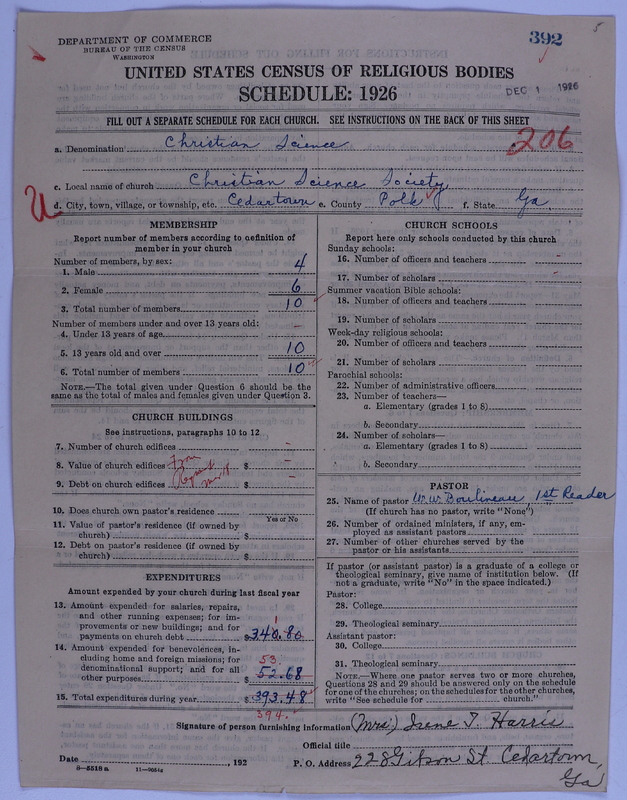 DEPARTMENT OF COMMERCE
BUREAU OF THE CENSUS
WASHINGTON
392
5
UNITED STATES CENSUS OF RELIGIOUS BODIES
SCHEDULE: 1926
DEC 1 1926
FILL OUT A SEPARATE SCHEDULE FOR EACH CHURCH. SEE INSTRUCTIONS ON THE BACK OF THIS SHEET
206
a. Denomination Christian Science
c. Local name of church Christian Science Society
U
d. City, town, village, or township, etc. Cedartown e. County Polk f. State Ga
MEMBERSHIP
Report number of members according to definition of
member in your church
Number of members, by sex:
1. Male 4
2. Female 6
3. Total number of members 10
Number of members under and over 13 years old:
4. Under 13 years of age –
5. 13 years old and over 10
6. Total number of members 10
NOTE.—The total given under Question 6 should be the
same as the total of males and females given under Question 3.
CHURCH BUILDINGS
See instructions, paragraphs 10 to 12
7. Number of church edifices –
8. Value of church edifices From $ –
9. Debt on church edifices $ –
10. Does church own pastor's residence?
Yes or No
11. Value of pastor's residence (if owned by
church) $
12. Debt on pastor's residence (if owned by
church) $
EXPENDITURES
Amount expended by your church during last fiscal year
13. Amount expended for salaries, repairs,
and other running expenses; for im-
provements or new buildings; and for
payments on church debt $340.80
1
14. Amount expended for benevolences, in-
cluding home and foreign missions; for
denominational support; and for all
other purposes $52.68
53.
15. Total expenditures during year $393.48
394.
CHURCH SCHOOLS
Report here only schools conducted by this church
Sunday schools:
16. Number of officers and teachers
17. Number of scholars –
Summer vacation Bible schools:
18. Number of officers and teachers
19. Number of scholars
Week-day religious schools:
20. Number of officers and teachers
21. Number of scholars
Parochial schools:
22. Number of administrative officers
23. Number of teachers—
a. Elementary (grades 1 to 8)
b. Secondary
24. Number of scholars—
a. Elementary (grades 1 to 8)
b. Secondary
PASTOR
25. Name of pastor W. W. Boulineau, 1st Reader
(If church has no pastor, write "None")
26. Number of ordained ministers, if any, em-
ployed as assistant pastors
27. Number of other churches served by the
pastor or his assistants
If pastor (or assistant pastor) is a graduate of a college or
theological seminary, give name of institution below. (If
not a graduate, write "No" in the space indicated.)
Pastor:
28. College
29. Theological seminary
Assistant pastor:
30. College
31. Theological seminary
NOTE.—Where one pastor serves two or more churches,
Questions 28 and 29 should be answered only on the schedule
for one of the churches; on the schedules for the other churches,
write "See schedule for church."
Signature of person furnishing information (Mrs.) Irene T. Harris
Official title
Date , 192 P. O. Address 228 Gibson St. Cedartown,
Ga
8—5518 a 11—9054